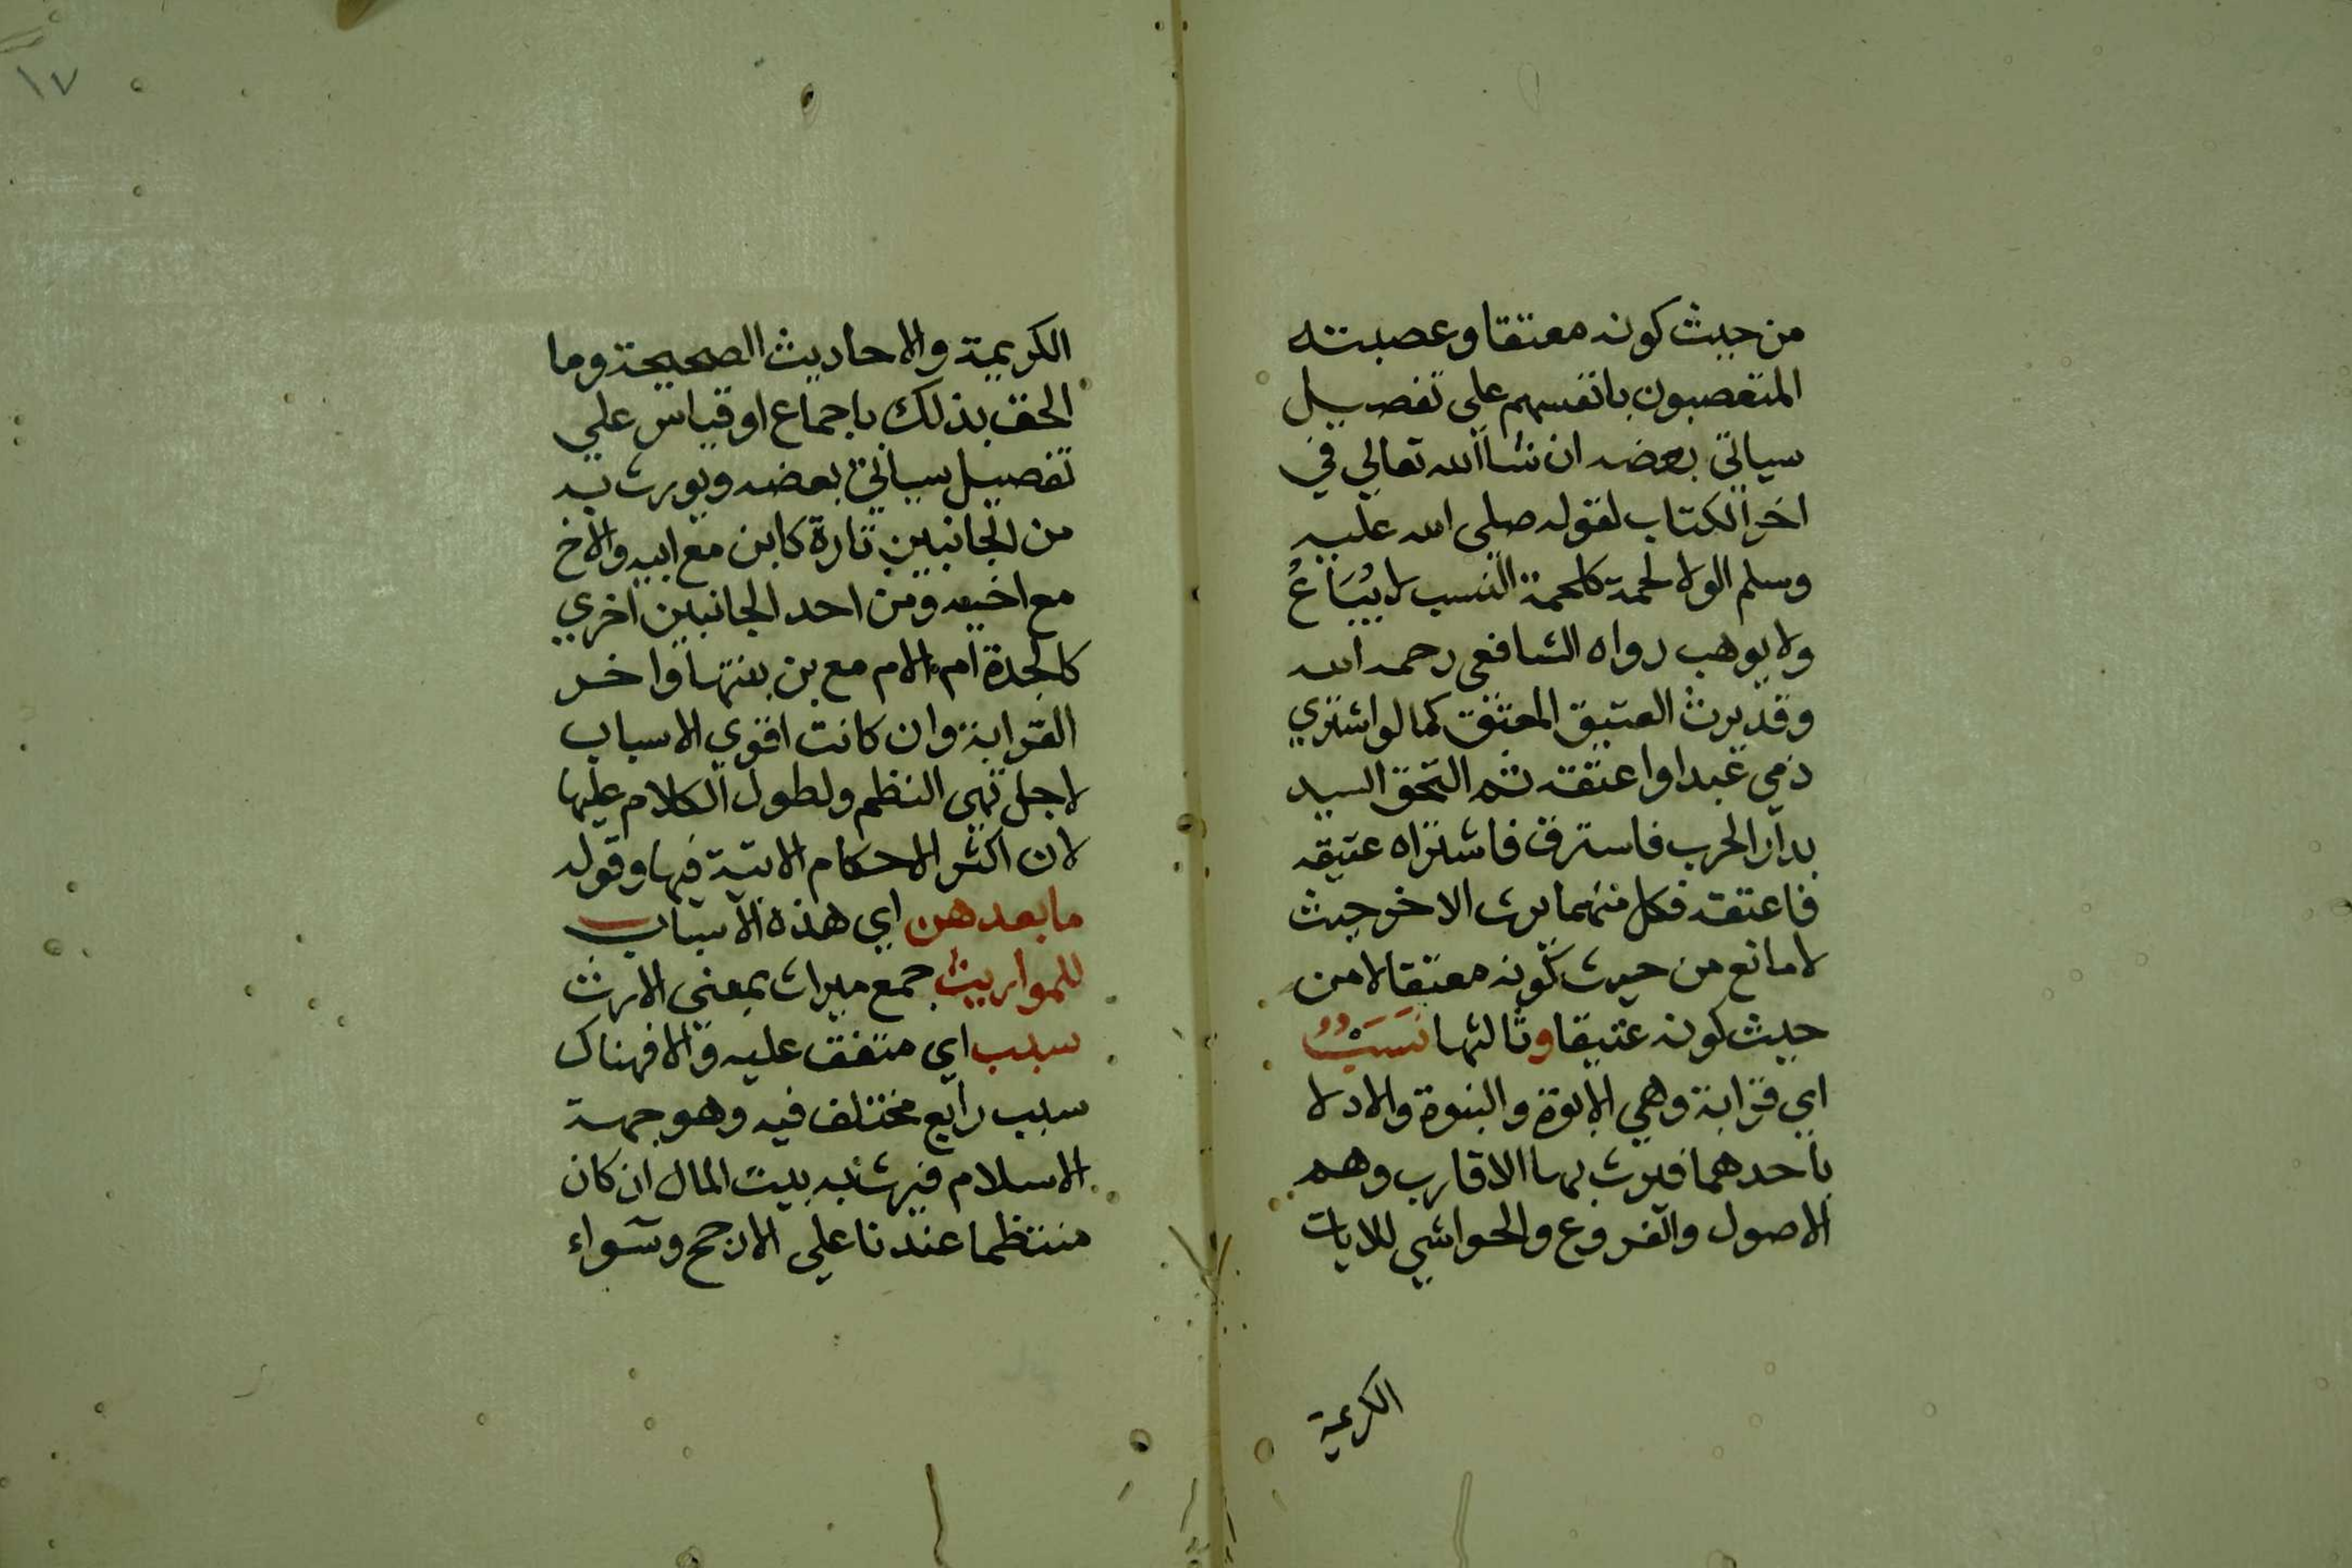 من حيث كونه معتقا وعصبته
المتعصبون بانفسهم علي تفصيل
سياتي بعضه ان شاالله تعالي في
اخر الكتاب لقوله صلى الله عليه
وسلم الولا لحمة كلحمة النسب لا يُبَاعُ
ولا يوهب رواه الشافعي رحمه الله
وقد يرث العتيق المعتق كما لو اشتري
ذمي عبدا واعتقه ثم التحق السيد
بدار الحرب فاسترق فاشتراه عتيقه
فاعتقه فكل منهما يرث الاخر حيث
لا مانع من حيث كونه معتقا لا من
حيث كونه عتيقا وثالثها نَسَبٌ
اي قرابة وهي الابوة والبنوة والادلا
باحدهما فيرث بها الاقارب وهم
الاصول والفروع والحواشي للايات
الكريمة
١٧
الكريمة والاحاديث الصحيحة وما
الحق بذلك باجماع او قياس علي
تفصيل سياتي بعضه ويورث به
من الجانبين تارة كابن مع ابيه والاخ
مع اخيه ومن احد الجانبين اخري
كالجدة ام الام مع بن بنتها واخر
القرابة وان كانت اقوي الاسباب
لاجل تهي النظم ولطول الكلام عليها
لان اكثر الاحكام الاتية فيها وقوله
ما بعدهن اي هذه الاسباب
للمواريث جمع ميراث بمعني الارث
سبب اي متفق عليه والا فهناك
سبب رابع مختلف فيه وهو جهة
الاسلام فيرث به بيت المال ان كان
منتظما عندنا علي الارجح وسواء